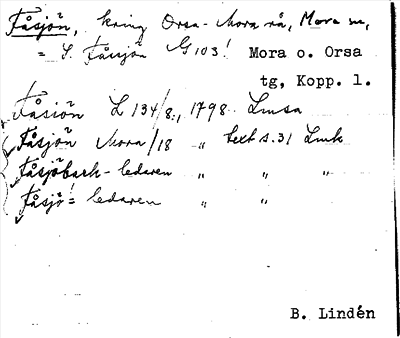 Fåsjön, kring Orsa-Mora rå, Mora sn,
= S. Fåssjön G103! Mora o. Orsa
tg, Kopp. l.
Fåsiön L 134/8:, 1798 Lmsa
Fåsjön Mora/18 " text s.31 Lmk
Fåsjöbäck-ledaren " " "
Fåsjö!-ledaren " "
B. Lindén